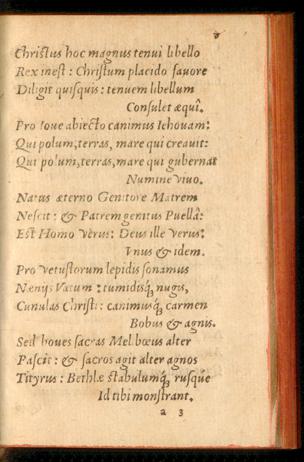 Christus hoc magnus tenui libello
Rex inest: Christum placido fauore
Diligit quisquis: tenuem libellum
Consulet æquî.
Pro Ioue abiecto canimus Iehouam:
Qui polum, terras, mare qui creauit:
Qui polum, terras, mare qui gubernat
Numine viuo.
Natus æterno Genitore Matrem
Nescit: & Patrem genitus Puellâ:
Est Homo verus: Deus ille verus:
Vnus & idem.
Pro vetustorum lepidis sonamus
Nænijs Vatum: tumidisq́; nugis,
Cunulas Christi: canimusq́; carmen
Bobus & agnis.
Sed boues sacras Melibœus alter
Pascit: & sacros agit alter agnos
Tityrus: Bethlæ stabulumq́; rusq́ue
Id tibi monstrant.
a 3